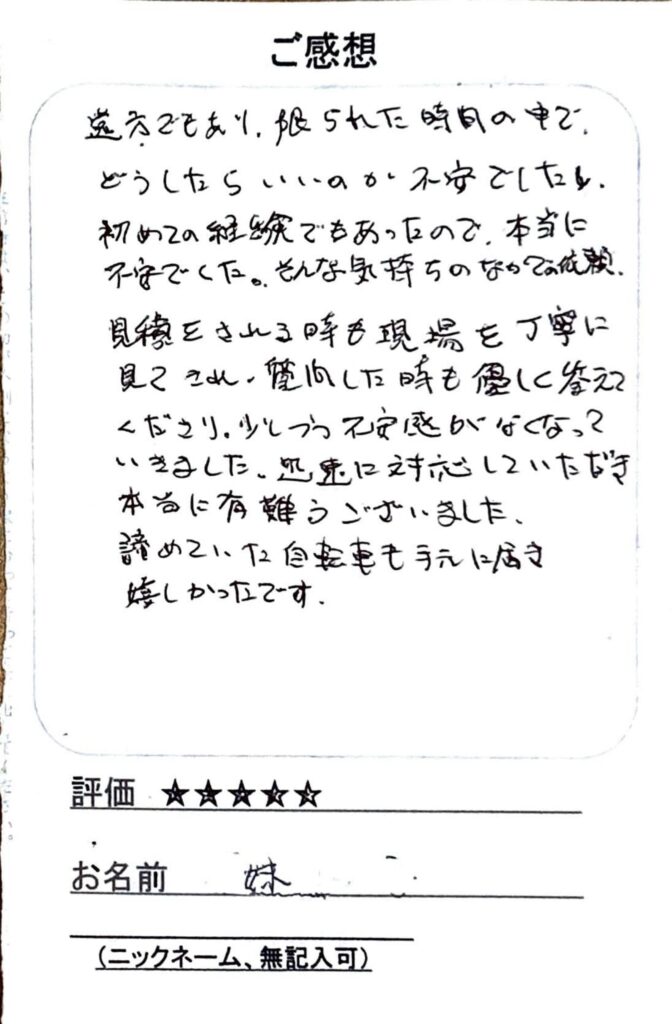 ご感想
遠方でもあり、限られた時間の中で、
どうしたらいいのか不安でした。
初めての経験でもあったので、本当に
不安でした。そんな気持ちのなかでの依頼、
見積をされる時も現場を丁寧に
見てされ、質問した時も優しく答えて
くださり、少しづつ不安感がなくなって
いきました、迅速に対応していただき
本当に有難うございました、
諦めていた自転車も手元に届き
嬉しかったです。
評価 ☆☆☆☆☆
お名前 妹
（ニックネーム、無記入可）